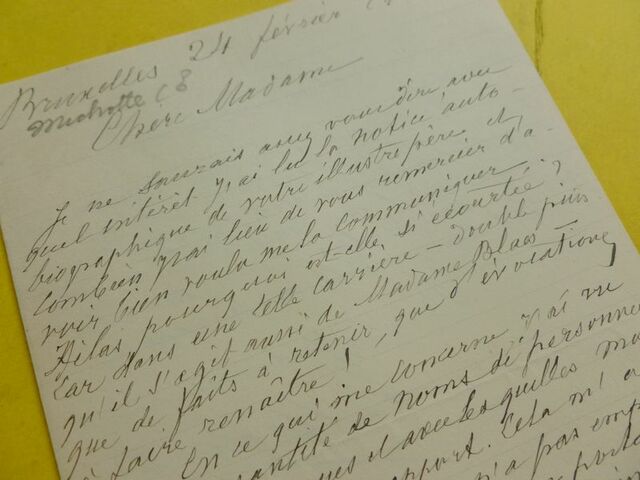 Bruxelles 24 février
Michotte C 8
Chère Madame
Je ne saurais assez vous dire, avec
quel intérêt j'ai lu la notice auto-
biographique de votre illustre père et
combien j'ai lieu de vous remercier d'a-
voir bien voulu me la communiquer
Hélas pourquoi est-elle si écourtée?
Car dans une telle carrière – double puis
qu'il s'agit aussi de Madame Blaes –
que de faits à retenir, que d'évocations
à faire renaître!
En ce qui me concerne j'ai vu
quantité de noms de personne
avec lesquelles
rapport. Cela m'a
n'a pas